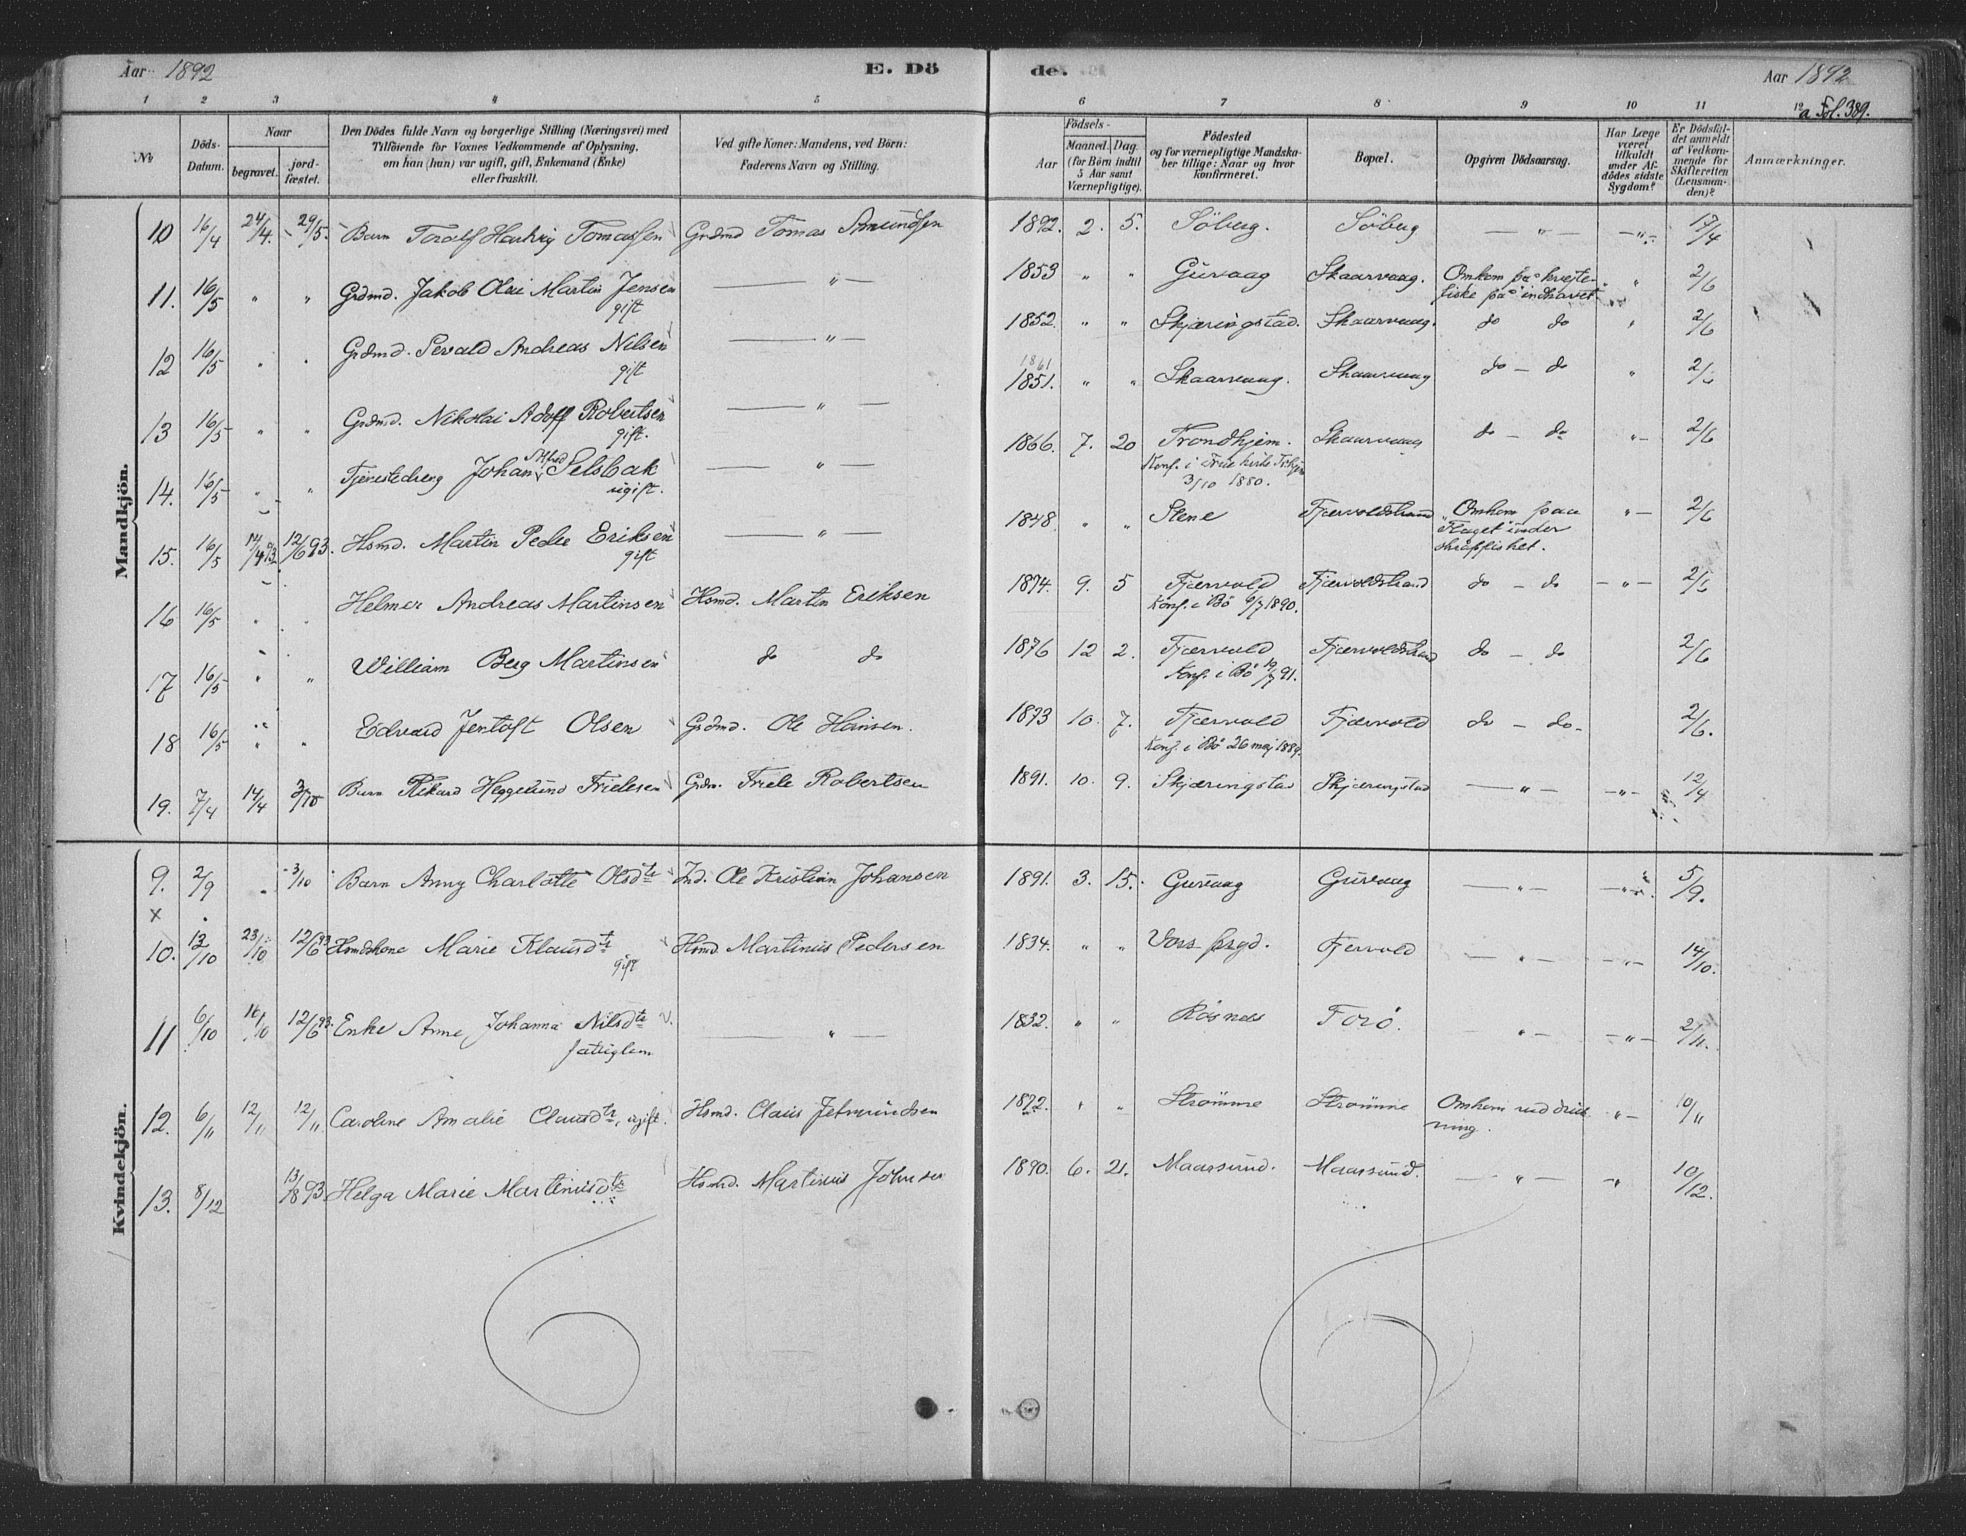 Aar 1892 E. Dö de. Aar 1892
1 2 3 4 5 6 7 8 9 10 11 12 a Fol. 389.
№
Döds-Datum.
Naar
begravet.
jord-fæstet.
Den Dödes fulde Navn og borgerlige Stilling (Næringsvei) med
Tilföiende for Voxnes Vedkommende af Oplysning,
om han (hun) var ugift, gift, Enkemand (Enke)
eller fraskilt.
Ved gifte Koner: Mandens, ved Börn:
Faderens Navn og Stilling.
Födsels-
Aar
Maaned. Dag.
(for Börn indtil
5 Aar samt
Værnepligtige).
Födested
og for værnepligtige Mandska-
ber tillige: Naar og hvor
konfirmeret.
Bopæl.
Opgiven Dödsaarsag.
Har Læge
været
tilkaldt
under Af-
dödes sidste
Sygdom?
Er Dödsfal-
det anmeldt
af Vedkom-
mende for
Skifteretten
(Lensman-
den)?
Anmærkninger.
Mandkjön.
10 16/4 24/4. 29/5. Barn Toralf Hartvig Tomassen Grdmd Tomas Amundsen 1892. 2. 5. Söberg. Söberg — " — — " — 17/4
11. 16/5 " " Grdmd. Jakob Olai Martin Jensen gift — " — 1853 " " Guvaag Skaarvaag. Omkom paa kveite-
fiske paa indhavet " 2/6
12 16/5 " " Grdmd. Sevald Andreas Nilsen gift — " — 1852. " " Skjæringstad. Skaarvaag. do do " 2/6
13 16/5 " " Grdmd. Nikolai Adolf Robertsen gift. — " — 1861
1851. " " Skaarvaag. Skaarvaag do — do " 2/6
14. 16/5 " " Tjenestedreng Johan Alfred Selsbak ugift. — " — 1866. 7. 20 Trondhjem. Skaarvaag do — do " — 2/6
Konf. i Frue kirke Trhjem
3/10 1880.
15. 16/5 14/4 93. 12/6 93. Hsmd. Martin Peder Eriksen gift — " — 1848. " " Stene Fjærvoldstrand Omkom paa
"Flaget" under
skreifisket. " — 2/6
16 16/5 " " Helmer Andreas Martinsen Hsmd. Martin Eriksen 1874. 9. 5 Fjærvold Fjærvoldstrand do — do — " — 2/6
Konf. i Bö 6/7 1890.
17 16/5 " " William Berg Martinsen do do 1876 12 2. Fjærvold Fjærvoldstrand do — do 2/6
Konf. i Bö 19/7 91.
18 16/5 " " Edvard Jentoft Olsen Grdmd. Ole Hansen. 1873 10. 7. Fjærvold Fjærvold do — do- 2/6.
Konf. i Bö 26 maj 1889.
19. 7/4 14/4 3/10 Barn Rikard Heggelund Frielesen Grdm. Friele Robertsen 1891. 10. 9. Skjæringstad Skjæringstad — " — — " — 12/4
Kvindekjön.
9. 2/9 " 3/10 Barn Anny Charlotte Olsdtr Ind. Ole Kristian Johansen 1891. 3. 15. Guvaag Guvaag — " — — " — 5/9.
x
10. 13/10 23/10 12/6 93 Hsmdskone Marie Klausdtr gift Hsmd. Martinus Pedersen 1834. " " Vors prgd. Fjervold — " — — " — 14/10.
11 6/10 16/10 12/6 93. Enke Anne Johanna Nilsdtr — " — 1832. " " Rösnes Forö. " — — " — 2/11.
fattiglem
12. 6/11 12/11 12/11 Caroline Amalie Clausdtr, ugift. Hsmd. Claus Jetmundsen 1872. " " Strömme Strömme Omkom ved druk-
ning. " — 10/11
13. 8/12 13/8 93 Helga Marie Martinusdtr Hsmd. Martinus Johnsen 1890. 6. 21. Maarsund. Maarsund. — " — — " 10/12.